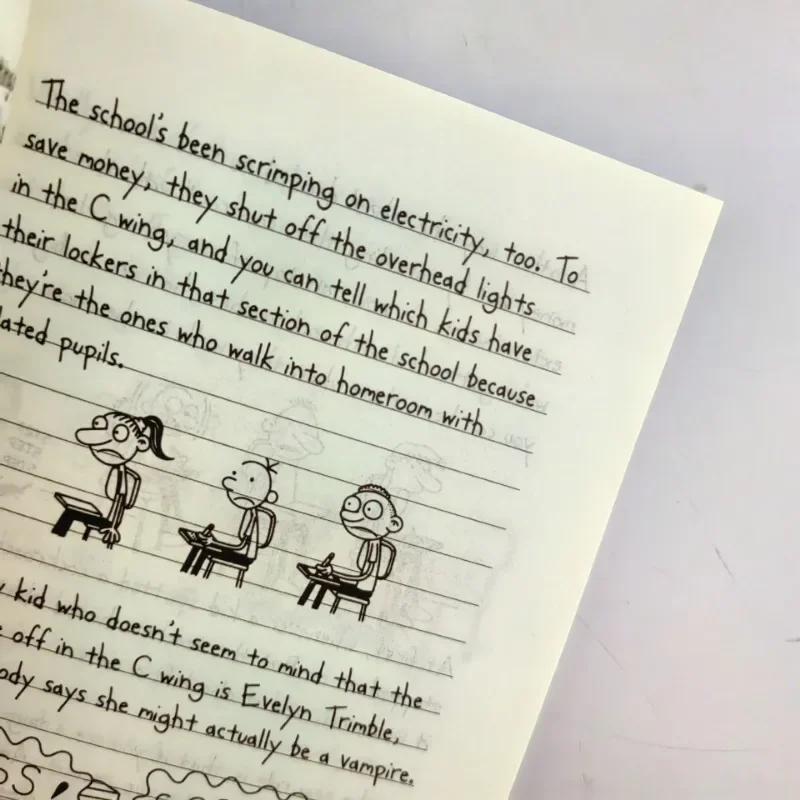 The school's been scrimping on electricity, too. To
save money, they shut off the overhead lights
in the C wing, and you can tell which kids have
their lockers in that section of the school because
they're the ones who walk into homeroom with
lated pupils.
kid who doesn't seem to mind that the
off in the C wing is Evelyn Trimble,
ody says she might actually be a vampire.